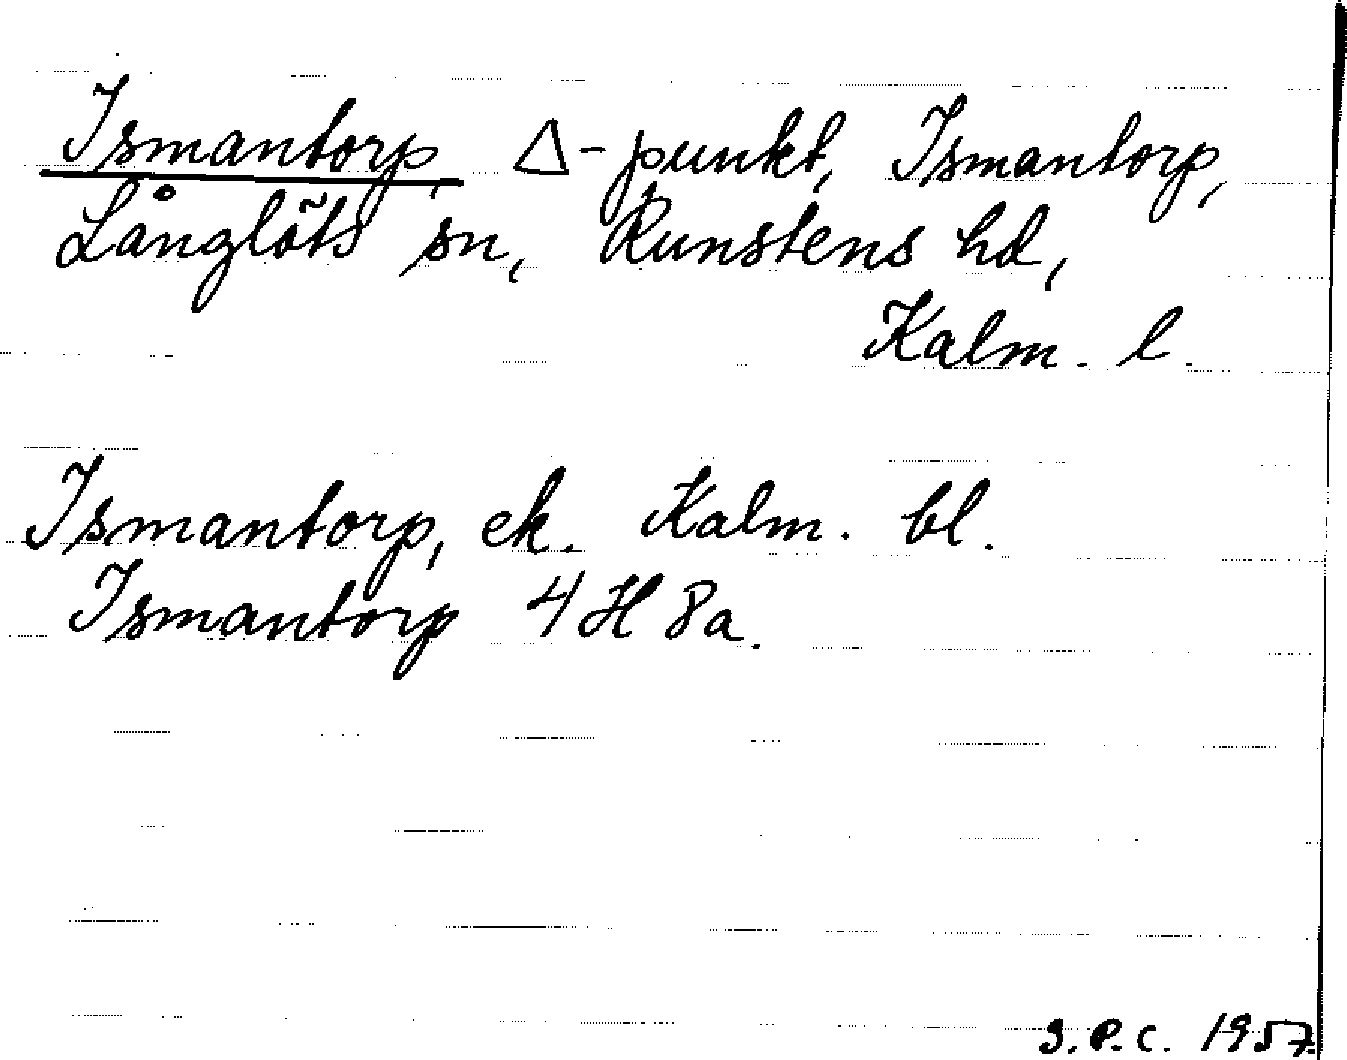 Ismantorp, Δ-punkt, Ismantorp,
Långlöts sn, Runstens hd,
Kalm. l.
Ismantorp, ek. Kalm. bl.
Ismantorp 4 H 8a.
G.P.C. 1957